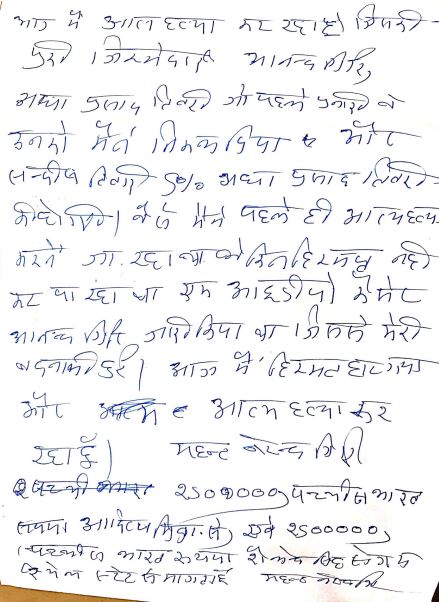 आज मैं आत्म हत्या कर रहा हो जिसकी
पुरी जिम्मेदारी आनन्द गिरि,
अध्या प्रसाद तिवारी जो पहले पुजारी थे
उनको मैंने निकाल दिया और
सन्दीप तिवारी अध्या प्रसाद तिवारी
की होगी। वैसे मैं पहले ही आत्महत्या
करने जा रहा था लेकिन हिम्मत नही
कर पा रहा था एक आडीयो कैसेट
आनन्द गिरि जारी किया था जिससे मेरी
बदनामी हुई। आज मैं हिम्मत हार गया
और आत्म हत्या कर
रहा हूँ। महन्त नरेन्द्र गिरी
2500000, पच्चीस लाख
रूपया आदित्य मिश्रा से, एवं 2500000,
पच्चीस लाख रूपया शैलेन्द्र सिंह
रीयल स्टेट से मागना है महन्त